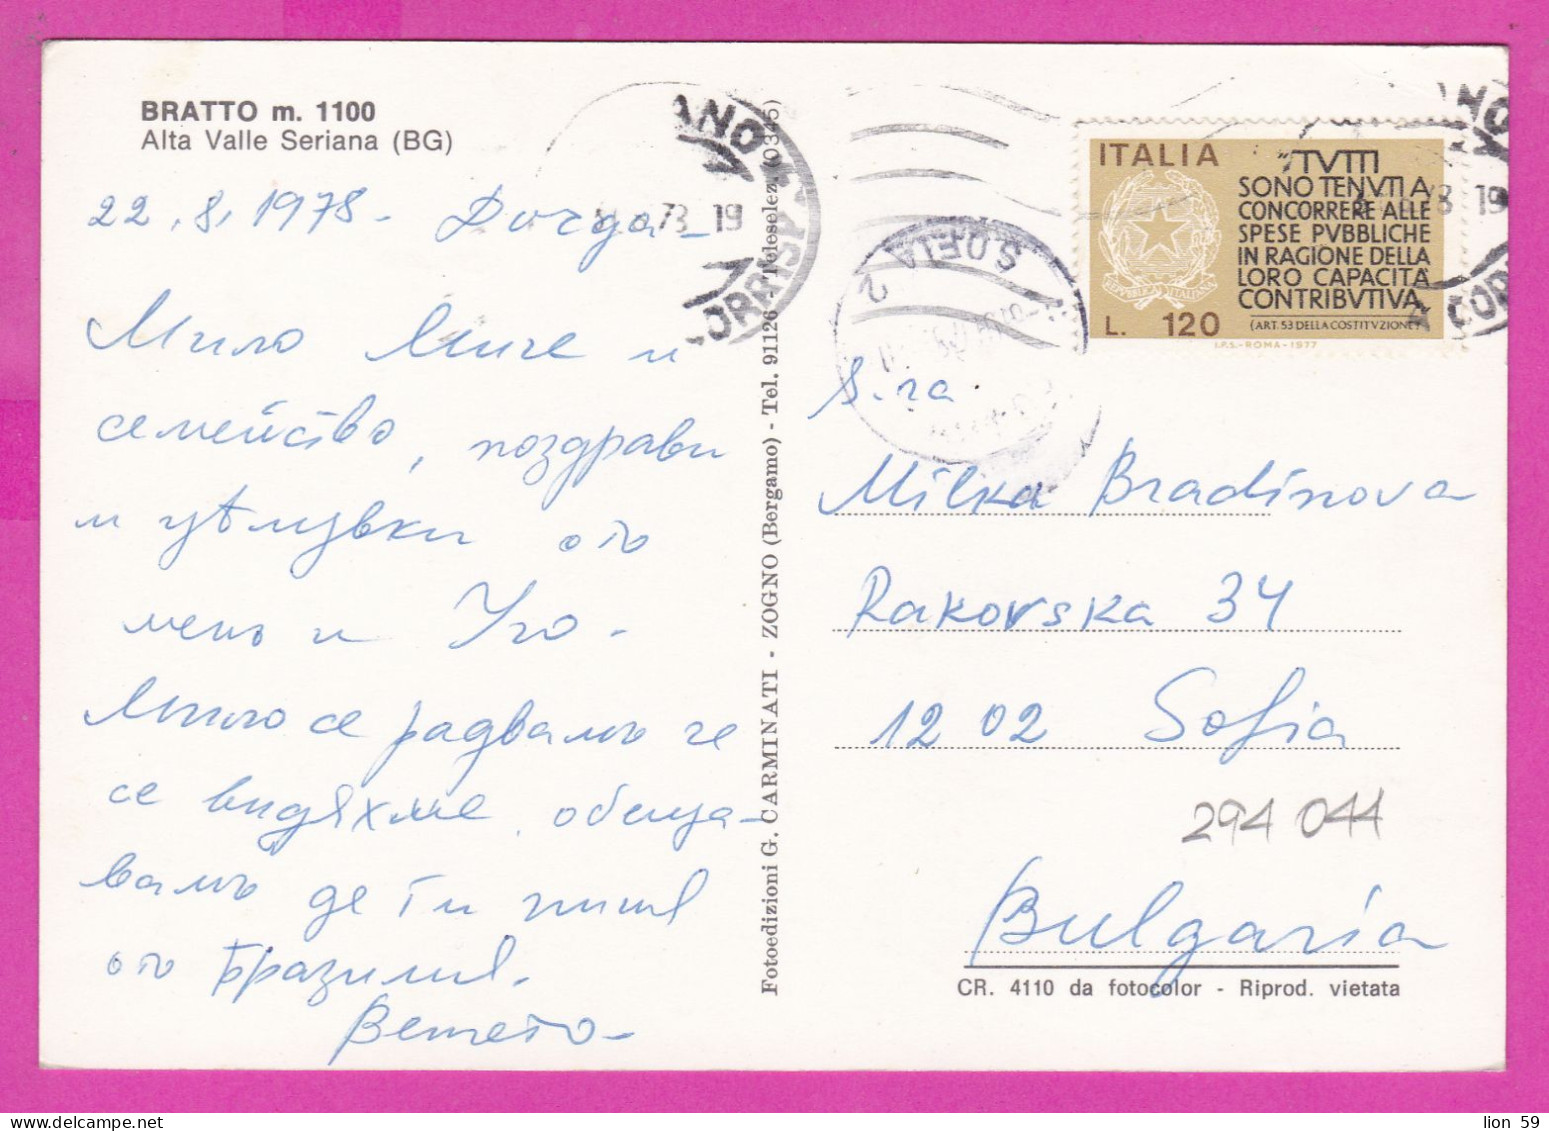 BRATTO m. 1100
Alta Valle Seriana (BG)
22.8.1978 -
Мило Миче и
семейство, поздрави
и цѣлувки отъ
менъ и Уго -
Много се радвамъ че
се видяхме, обеща-
вамъ де ти пиша
отъ Бразилия.
Венето -
Fotoedizioni G. CARMINATI - ZOGNO (Bergamo) - Tel. 91126 - Teleselez. (0345)
78 19
SOFIA 2
78 19
ITALIA
TVTTI
SONO TENVTI A
CONCORRERE ALLE
SPESE PVBBLICHE
IN RAGIONE DELLA
LORO CAPACITA
CONTRIBVTIVA
(ART. 53 DELLA COSTITVZIONE)
REPVBBLICA ITALIANA
L. 120
I.P.S. - ROMA - 1977
S.ra
Milka Bradinova
Rakovska 34
1202 Sofia
294 044
Bulgaria
CR. 4110 da fotocolor - Riprod. vietata
lion 59